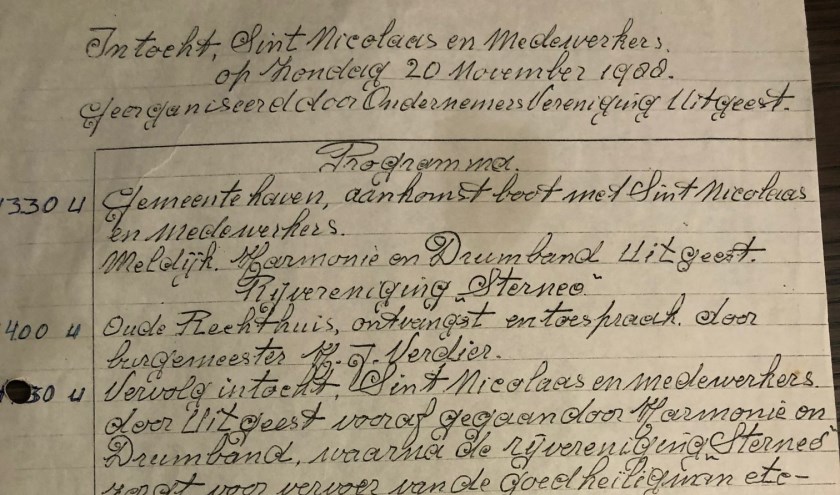 Intocht, Sint Nicolaas en Medewerkers.
op Zondag 20 November 1988.
Georganiseerd door Ondernemers Vereniging Uitgeest.
Programma.
1330 u Gemeente haven, aankomst boot met Sint Nicolaas
en medewerkers.
Meldijk. Harmonie en Drumband Uitgeest.
Rijvereniging "Sterneo"
1400 u Oude Rechthuis, ontvangst en toespraak door
burgemeester H.J. Verdier.
30 u Vervolg intocht, Sint Nicolaas en medewerkers.
door Uitgeest vooraf gegaan door Harmonie en
Drumband, waarna de rijvereniging "Sterneo"
zorgt voor vervoer van de Goedheiligman etc-